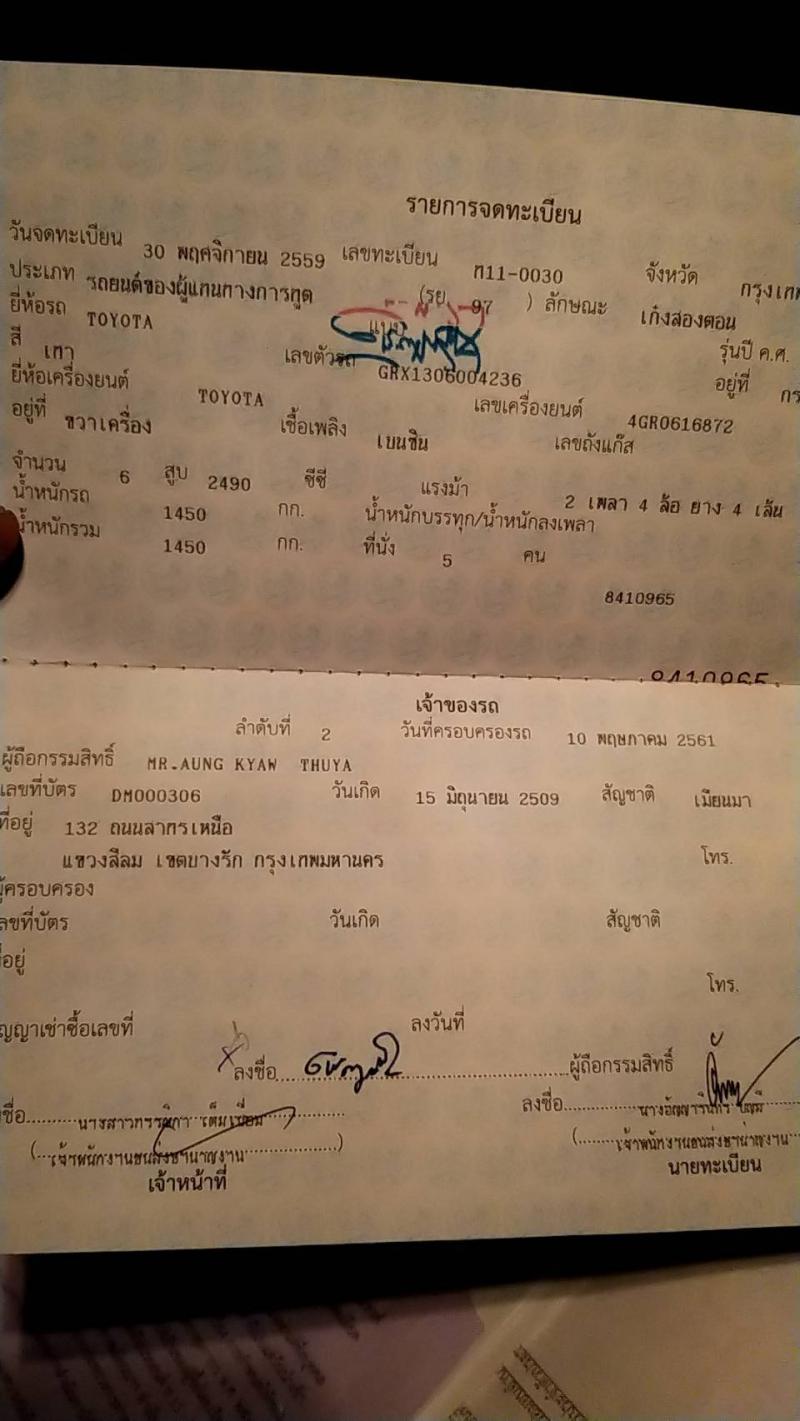 รายการจดทะเบียน
วันจดทะเบียน 30 พฤศจิกายน 2559 เลขทะเบียน ท11-0030 จังหวัด กรุงเทพ
ประเภท รถยนต์ของผู้แทนทางการทูต (รย. 97 ) ลักษณะ เก๋งสองตอน
ยี่ห้อรถ TOYOTA แบบ รุ่นปี ค.ศ.
สี เทา เลขตัวรถ GRX1306004236 อยู่ที่
ยี่ห้อเครื่องยนต์ TOYOTA เลขเครื่องยนต์ 4GR0616872
อยู่ที่ ขวาเครื่อง เชื้อเพลิง เบนซิน เลขถังแก๊ส
จำนวน 6 สูบ 2490 ซีซี แรงม้า 2 เพลา 4 ล้อ ยาง 4 เส้น
น้ำหนักรถ 1450 กก. น้ำหนักบรรทุก/น้ำหนักลงเพลา
น้ำหนักรวม 1450 กก. ที่นั่ง 5 คน
8410965
8410965
เจ้าของรถ
ลำดับที่ 2 วันที่ครอบครองรถ 10 พฤษภาคม 2561
ผู้ถือกรรมสิทธิ์ MR.AUNG KYAW THUYA
เลขที่บัตร DM000306 วันเกิด 15 มิถุนายน 2509 สัญชาติ เมียนมา
ที่อยู่ 132 ถนนสาทรเหนือ
แขวงสีลม เขตบางรัก กรุงเทพมหานคร โทร.
ผู้ครอบครอง
เลขที่บัตร วันเกิด สัญชาติ
ที่อยู่
โทร.
สัญญาเช่าซื้อเลขที่ ลงวันที่
ลงชื่อ ผู้ถือกรรมสิทธิ์
ลงชื่อ นางสาว ลงชื่อ
(เจ้าพนักงานขนส่งชำนาญงาน) (เจ้าพนักงานขนส่งชำนาญงาน
เจ้าหน้าที่ นายทะเบียน